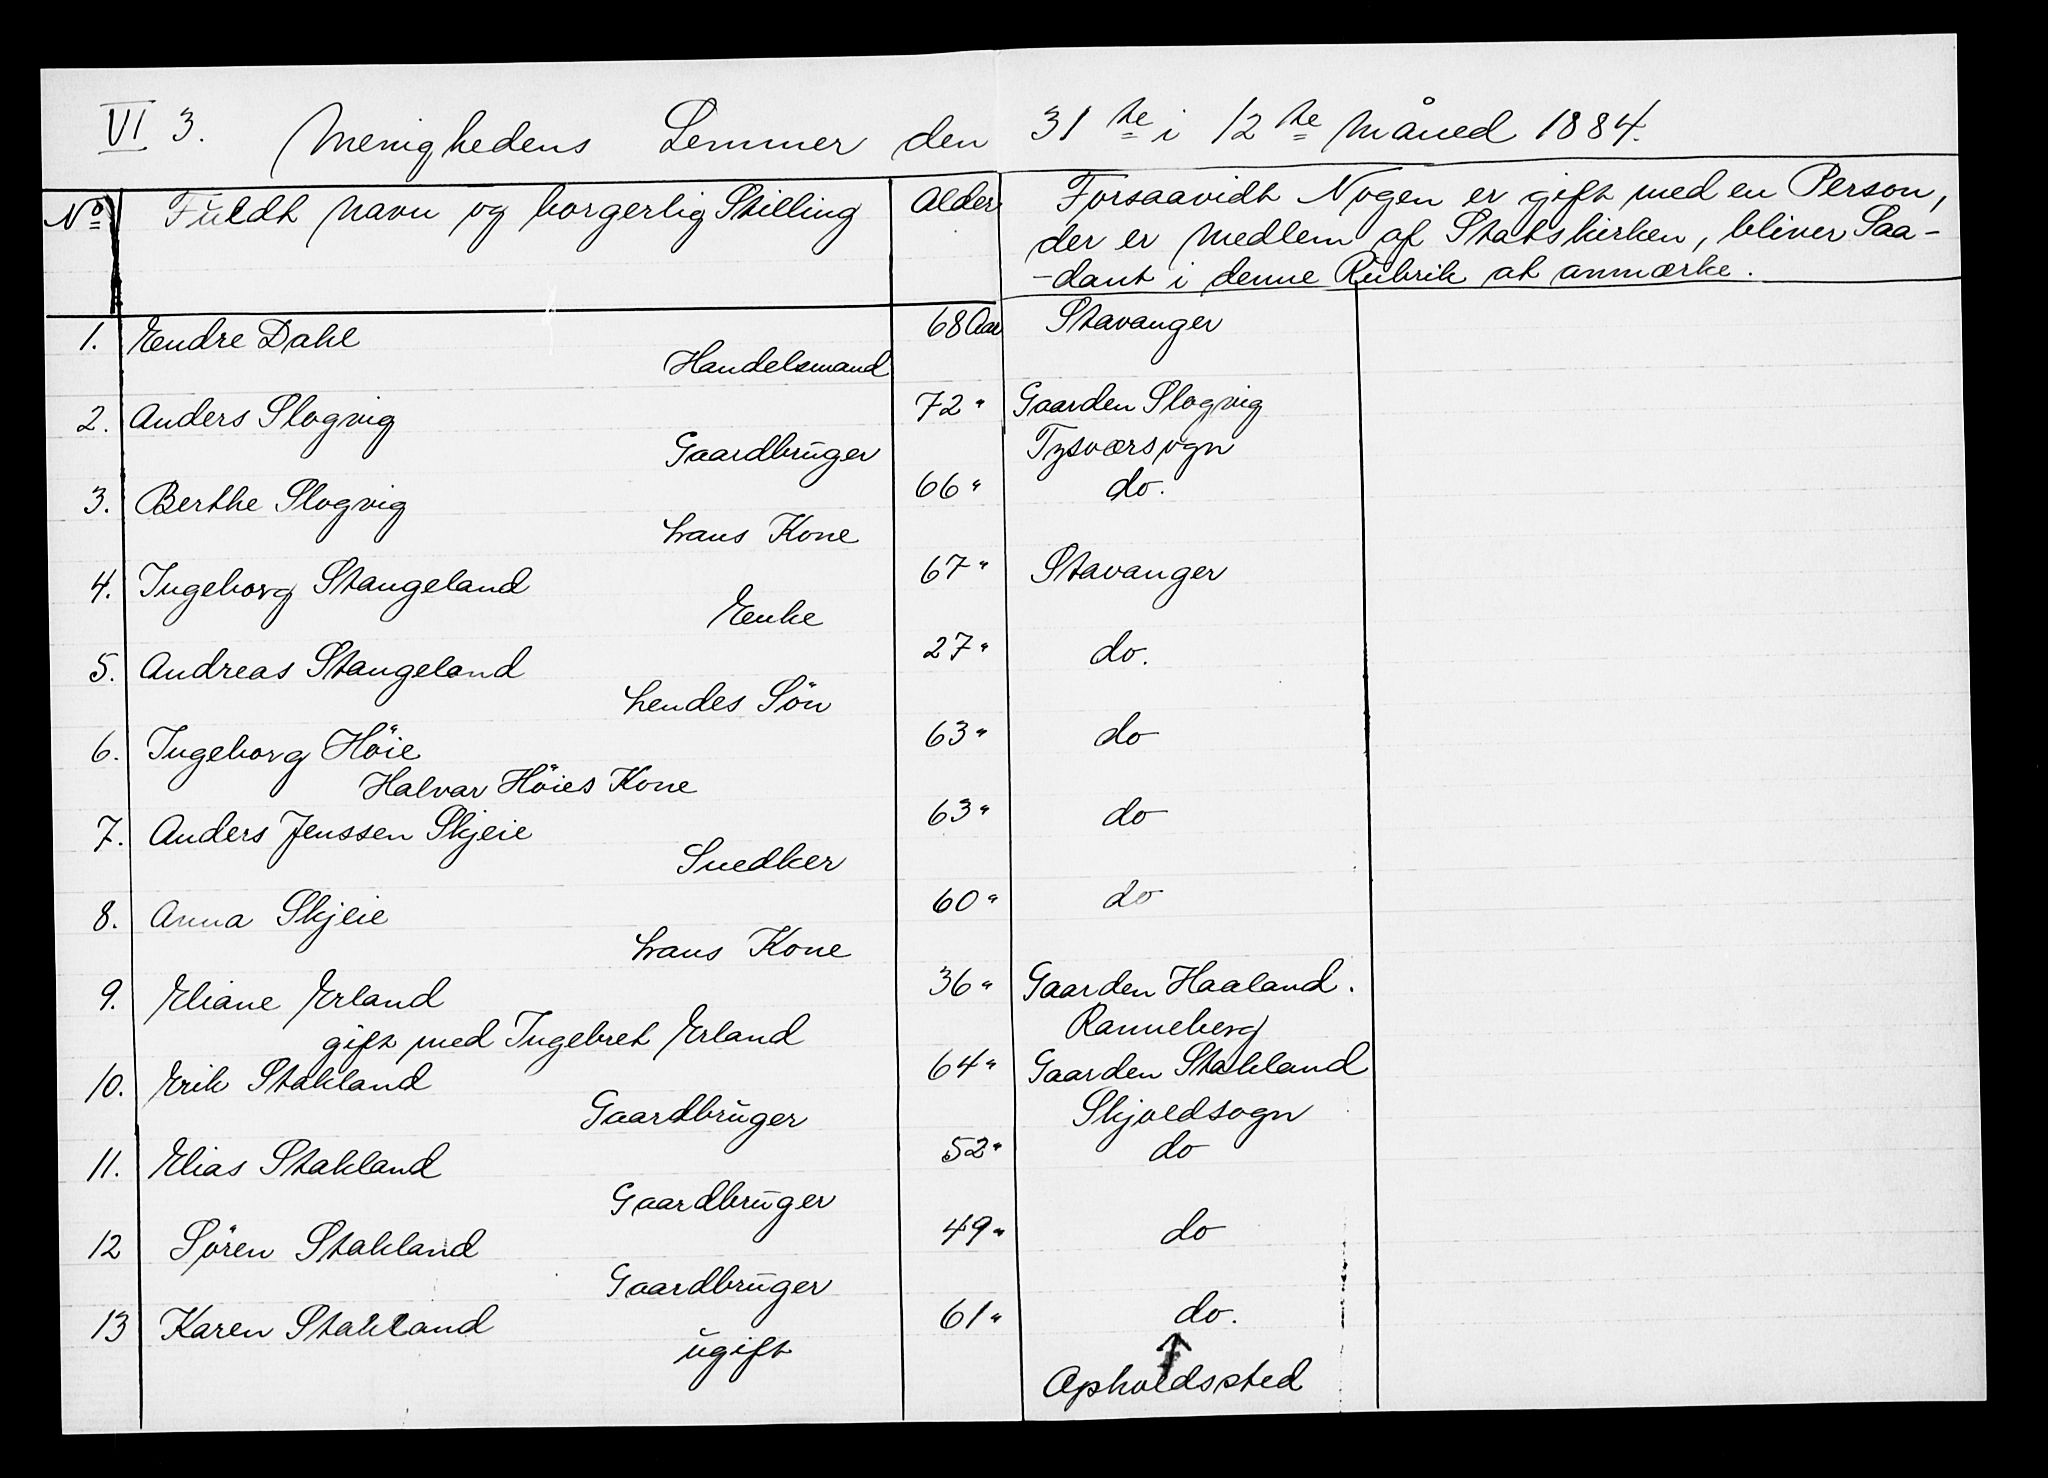 VI 3. Menighedens Lemmer den 31te i 12te Måned 1884.
No Fuldt Navn og borgerlig Stilling Alder Forsaavidt Nogen er gift med en Person,
der er Medlem af Statskirken, bliver Saa-
-dant i denne Rubrik at anmærke.
1. Endre Dahl 68 Aar Stavanger
Handelsmand
2. Anders Slogvig 72 " Gaarden Slogvig
Gaardbruger Tysværsogn
3. Berthe Slogvig 66 " do.
hans Kone
4. Ingeborg Stangeland 67 " Stavanger
Enke
5. Andreas Stangeland 27 " do.
hendes Sön
6. Ingeborg Höie 63 " do
Halvar Höies Kone
7. Anders Jenssen Skjeie 63 " do
Snedker
8. Anna Skjeie 60 " do
hans Kone
9. Eliane Erland 36 " Gaarden Haaland.
gift med Ingebret Erland Ranneberg
10. Erik Stakland 64 " Gaarden Stakland
Gaardbruger Skjoldsogn
11. Elias Stakland 52 " do
Gaardbruger
12 Sören Stakland 49 " do
Gaardbruger
13 Karen Stakland 61 " do.
ugift
↑
Opholdssted